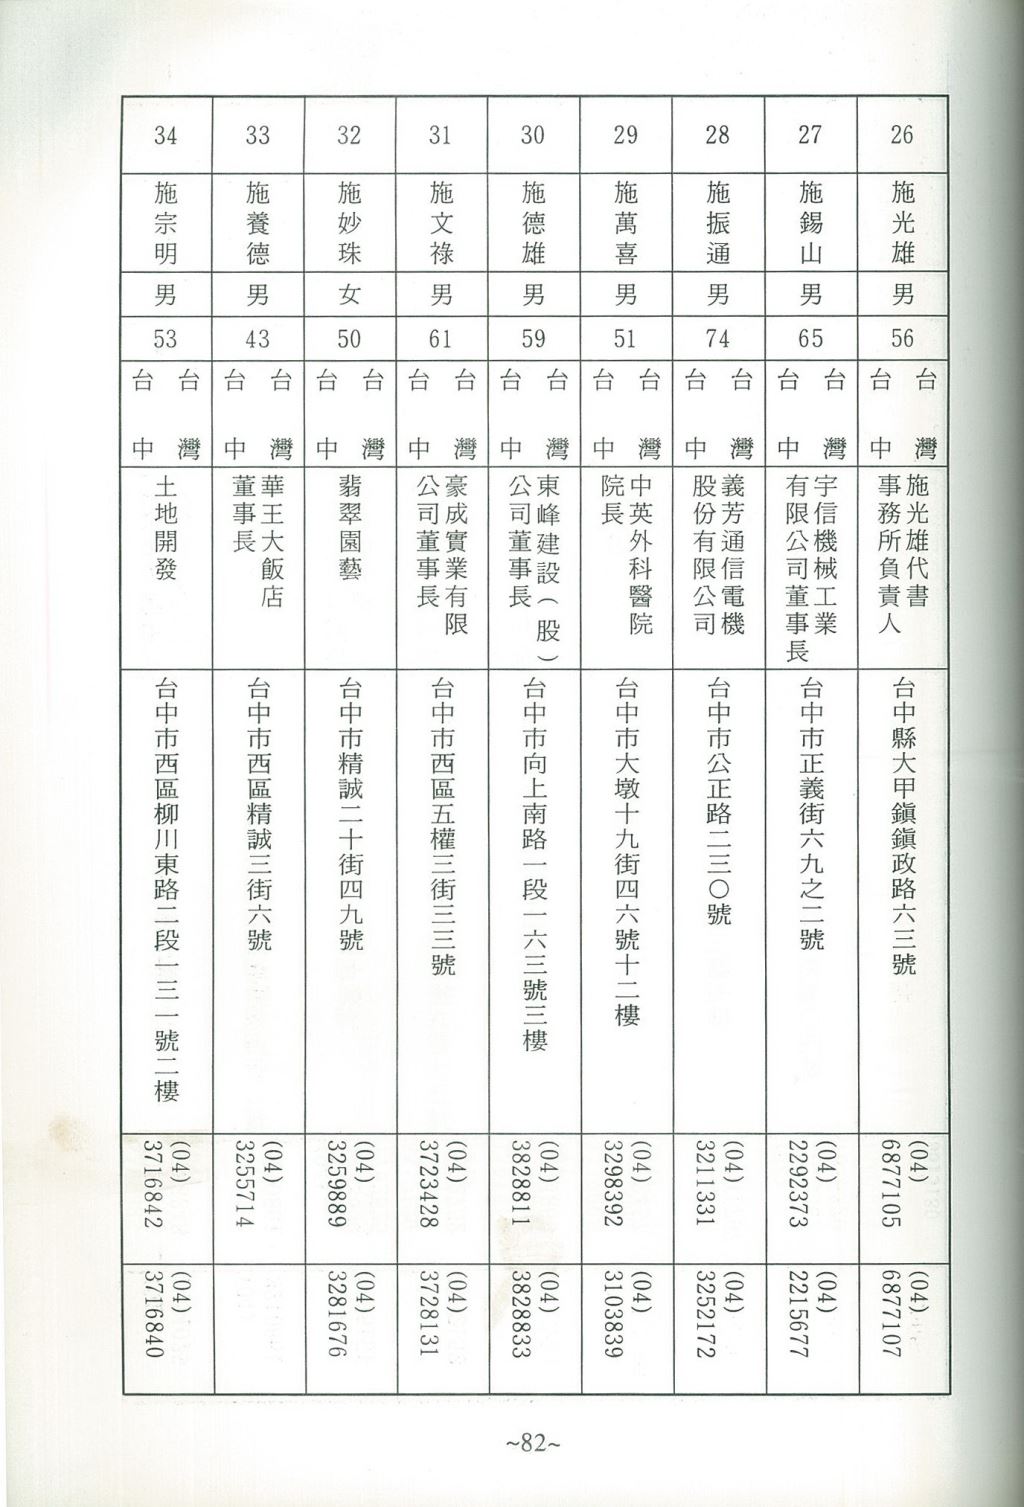 26
施光雄
男
56
台灣
台中
施光雄代書
事務所負責人
台中縣大甲鎮鎮政路六三號
(04)
6877105
(04)
6877107
27
施錫山
男
65
台灣
台中
宇信機械工業
有限公司董事長
台中市正義街六九之二號
(04)
2292373
(04)
2215677
28
施振通
男
74
台灣
台中
義芳通信電機
股份有限公司
台中市公正路二三〇號
(04)
3211331
(04)
3252172
29
施萬喜
男
51
台灣
台中
中英外科醫院
院長
台中市大墩十九街四六號十二樓
(04)
3298392
(04)
3103839
30
施德雄
男
59
台灣
台中
東峰建設(股)
公司董事長
台中市向上南路一段一六三號三樓
(04)
3828811
(04)
3828833
31
施文祿
男
61
台灣
台中
豪成實業有限
公司董事長
台中市西區五權三街三三號
(04)
3723428
(04)
3728131
32
施妙珠
女
50
台灣
台中
翡翠園藝
台中市精誠二十街四九號
(04)
3259889
(04)
3281676
33
施養德
男
43
台灣
台中
華王大飯店
董事長
台中市西區精誠三街六號
(04)
3255714
34
施宗明
男
53
台灣
台中
土地開發
台中市西區柳川東路二段一三一號二樓
(04)
3716842
(04)
3716840
~82~